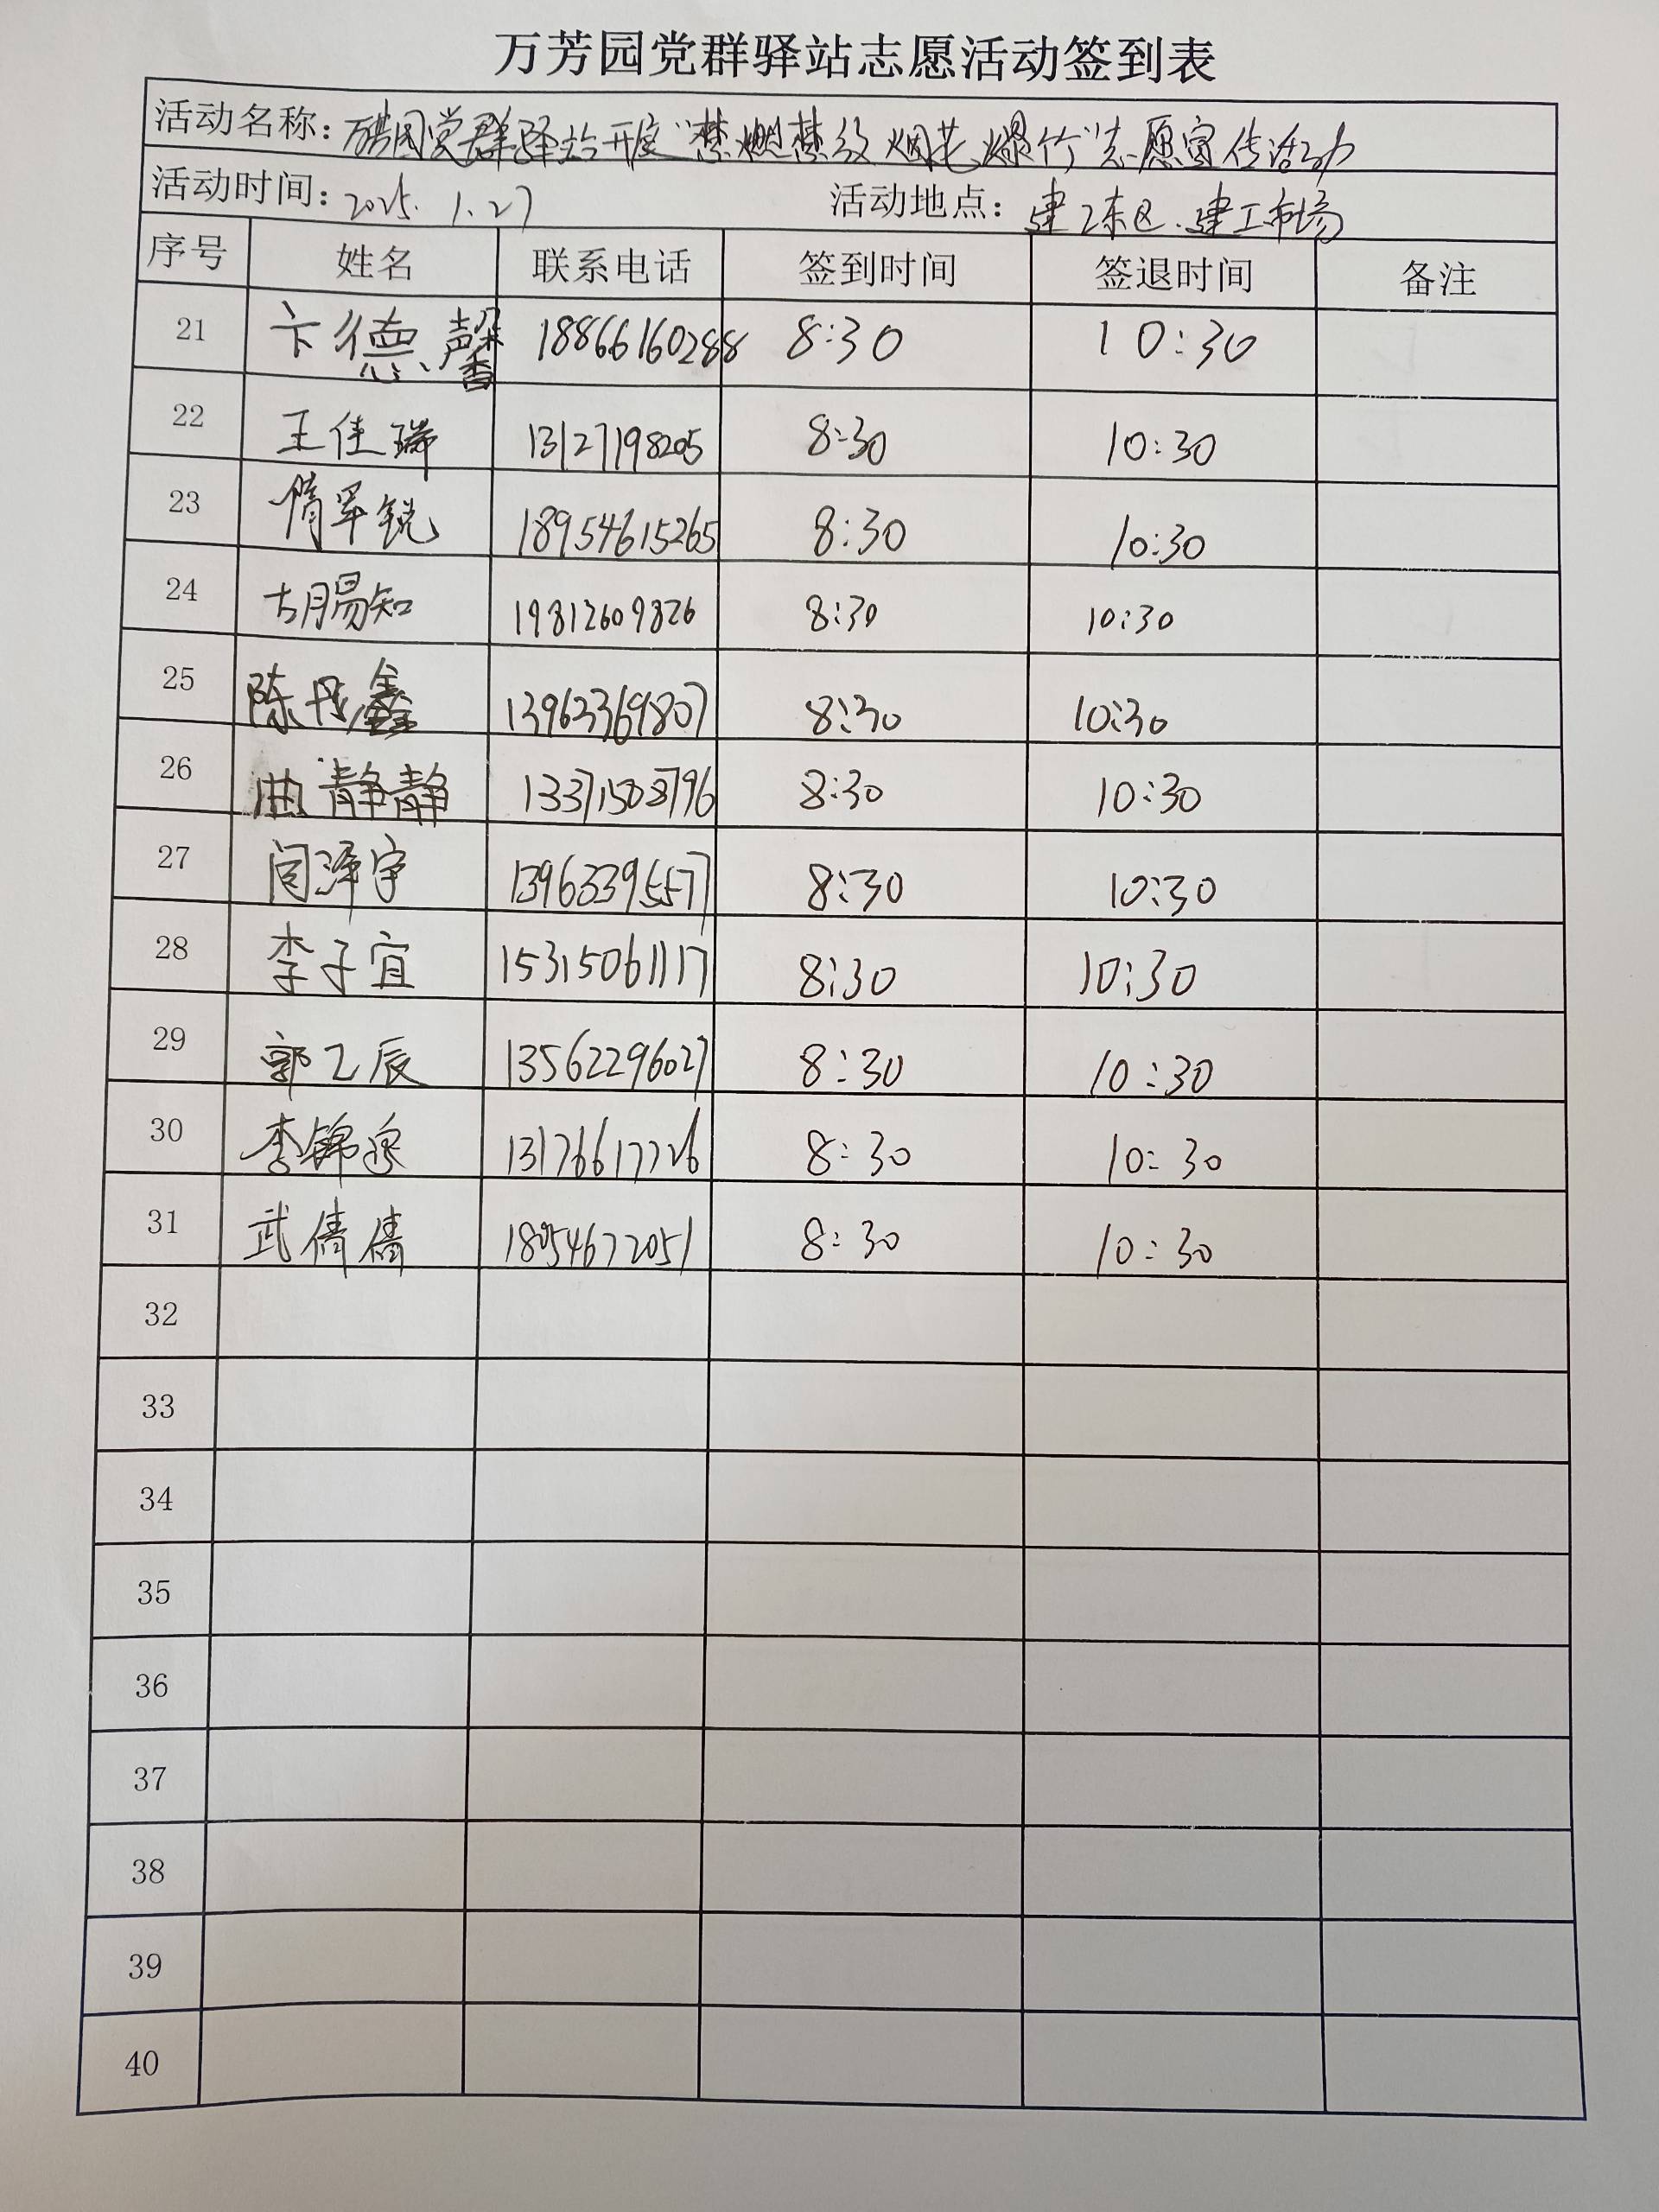 万芳园党群驿站志愿活动签到表
活动名称：万芳园党群驿站开展“禁燃禁放烟花爆竹”志愿宣传活动
活动时间：2025.1.27 活动地点：建工东区.建工市场
序号 姓名 联系电话 签到时间 签退时间 备注
21 卞德馨 18866160288 8:30 10:30
22 王佳瑞 13127198205 8:30 10:30
23 隋军锐 18954615265 8:30 10:30
24 胡易知 19812609826 8:30 10:30
25 陈茂鑫 13963369807 8:30 10:30
26 曲静静 13371508796 8:30 10:30
27 闫泽宇 13963395577 8:30 10:30
28 李子宜 15315061117 8:30 10:30
29 郭乙辰 13562296027 8:30 10:30
30 李锦逸 13176617726 8:30 10:30
31 武倩倩 18054672051 8:30 10:30
32
33
34
35
36
37
38
39
40